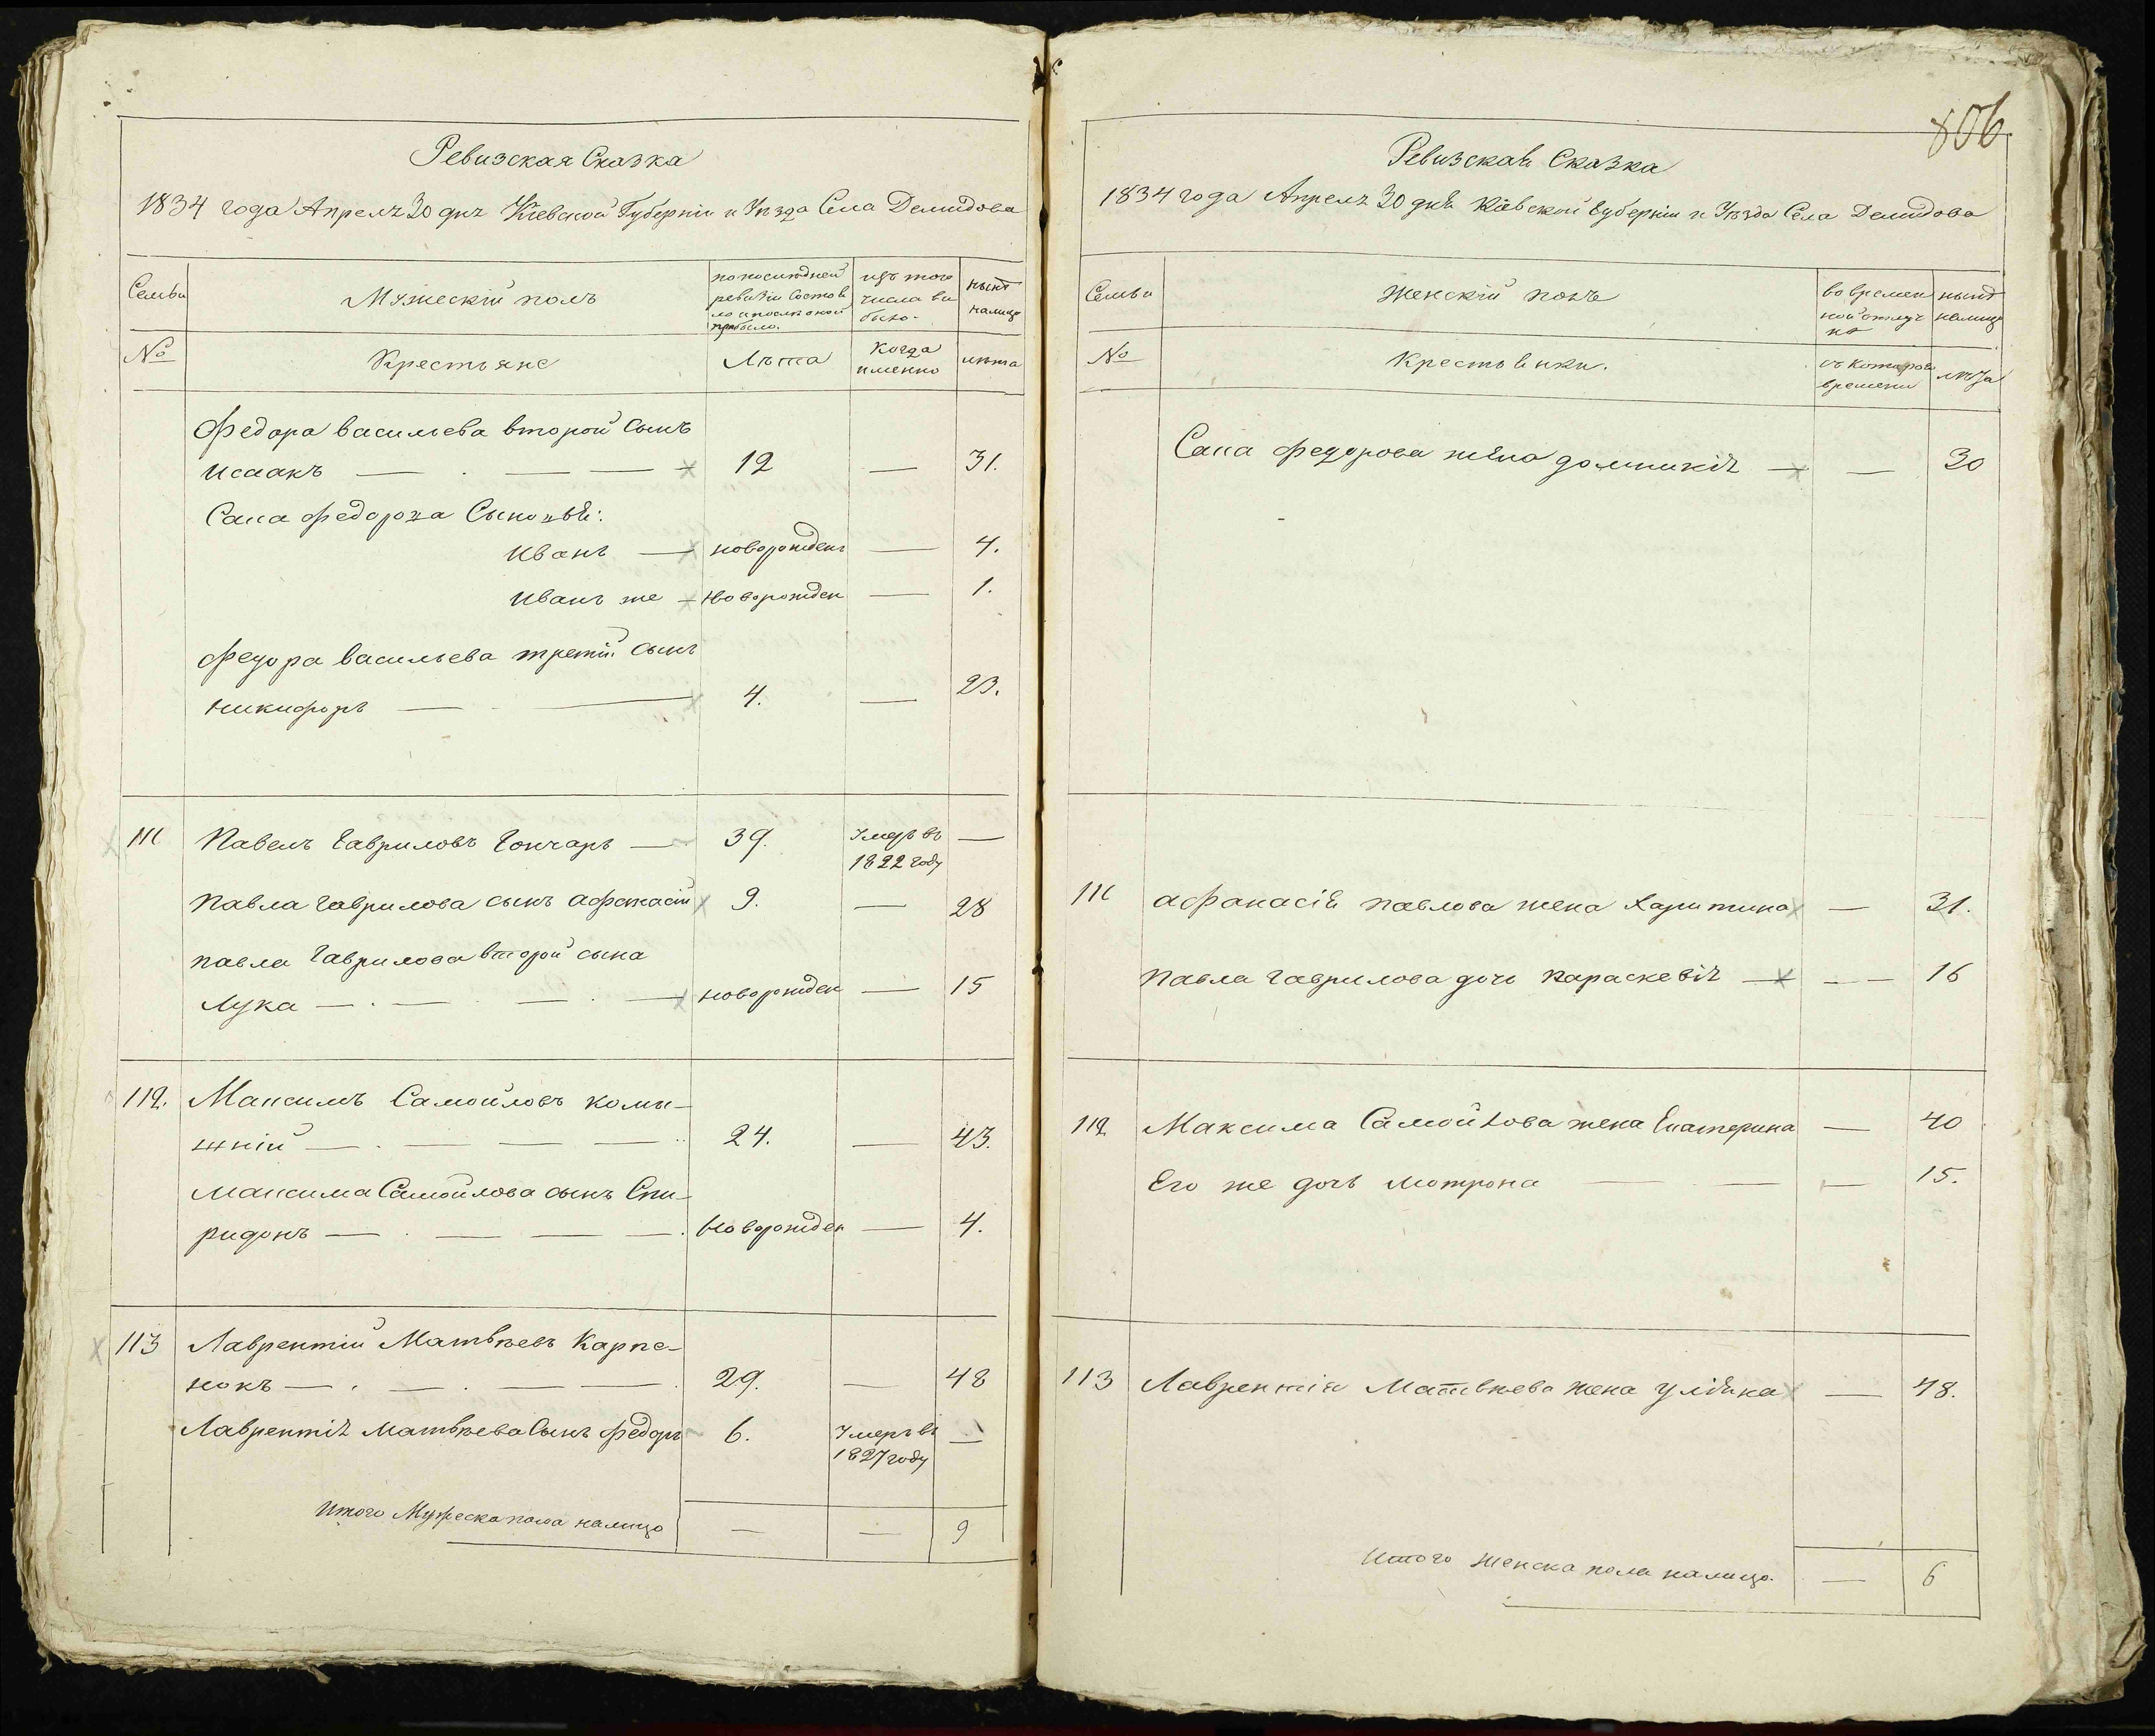 Ревизская Сказка
1834 года Апреля 30 дня Кіевской Губерніи и Уѣзда Села Демидова
Семьи
Мужескій полъ
по последней ревизіи состояло и после оной прибыло.
изъ того числа выбыло.
нынѣ налицо
№
Крестьяне
Лѣта
Когда именно
лѣта
Федора Васильева второй сынъ
Исаакъ — — — 12 — 31.
Сака Федорова Сыновья:
Иванъ — новорожденъ — 4.
Иванъ же — новорожден — 1.
Федора Васильева третій сынъ
Никифоръ — — 4. — 23.
111 Павелъ Гавриловъ Гончаръ — 39. Умеръ въ 1822 году —
Павла Гаврилова сынъ Афанасій 9. — 28
Павла Гаврилова второй сына
Лука — — — — новорожден — 15
112. Максимъ Самойловъ
жній — — — — 24. — 43.
Максима Самойлова сынъ Спи-
ридонъ — — — — Новорожден — 4.
113 Лаврентій Матвѣевъ Карпе-
нокъ — — — — 29. — 48
Лаврентія Матвѣева Сынъ Федоръ 6. Умеръ въ 1827 году —
Итого Мужеска пола налицо — — 9
806
Ревизская Сказка
1834 года Апреля 30 дня Кіевской Губерніи и Уѣзда Села Демидова
Семьи
Женскій полъ
во временной отлучке
нынѣ налицо
№
Крестьянки.
съ котораго времени
лѣта
Сака Федорова жена Домникія — — 30
111 Афанасія Павлова жена Харитина — 31.
Павла Гаврилова дочь Параскевія — — — 16
112 Максима Самойлова жена Екатерина — 40
Его же дочь Мотрона — — — 15.
113 Лаврентія Матвѣева жена Уліяна — 48.
Итого женска пола налицо. — 6